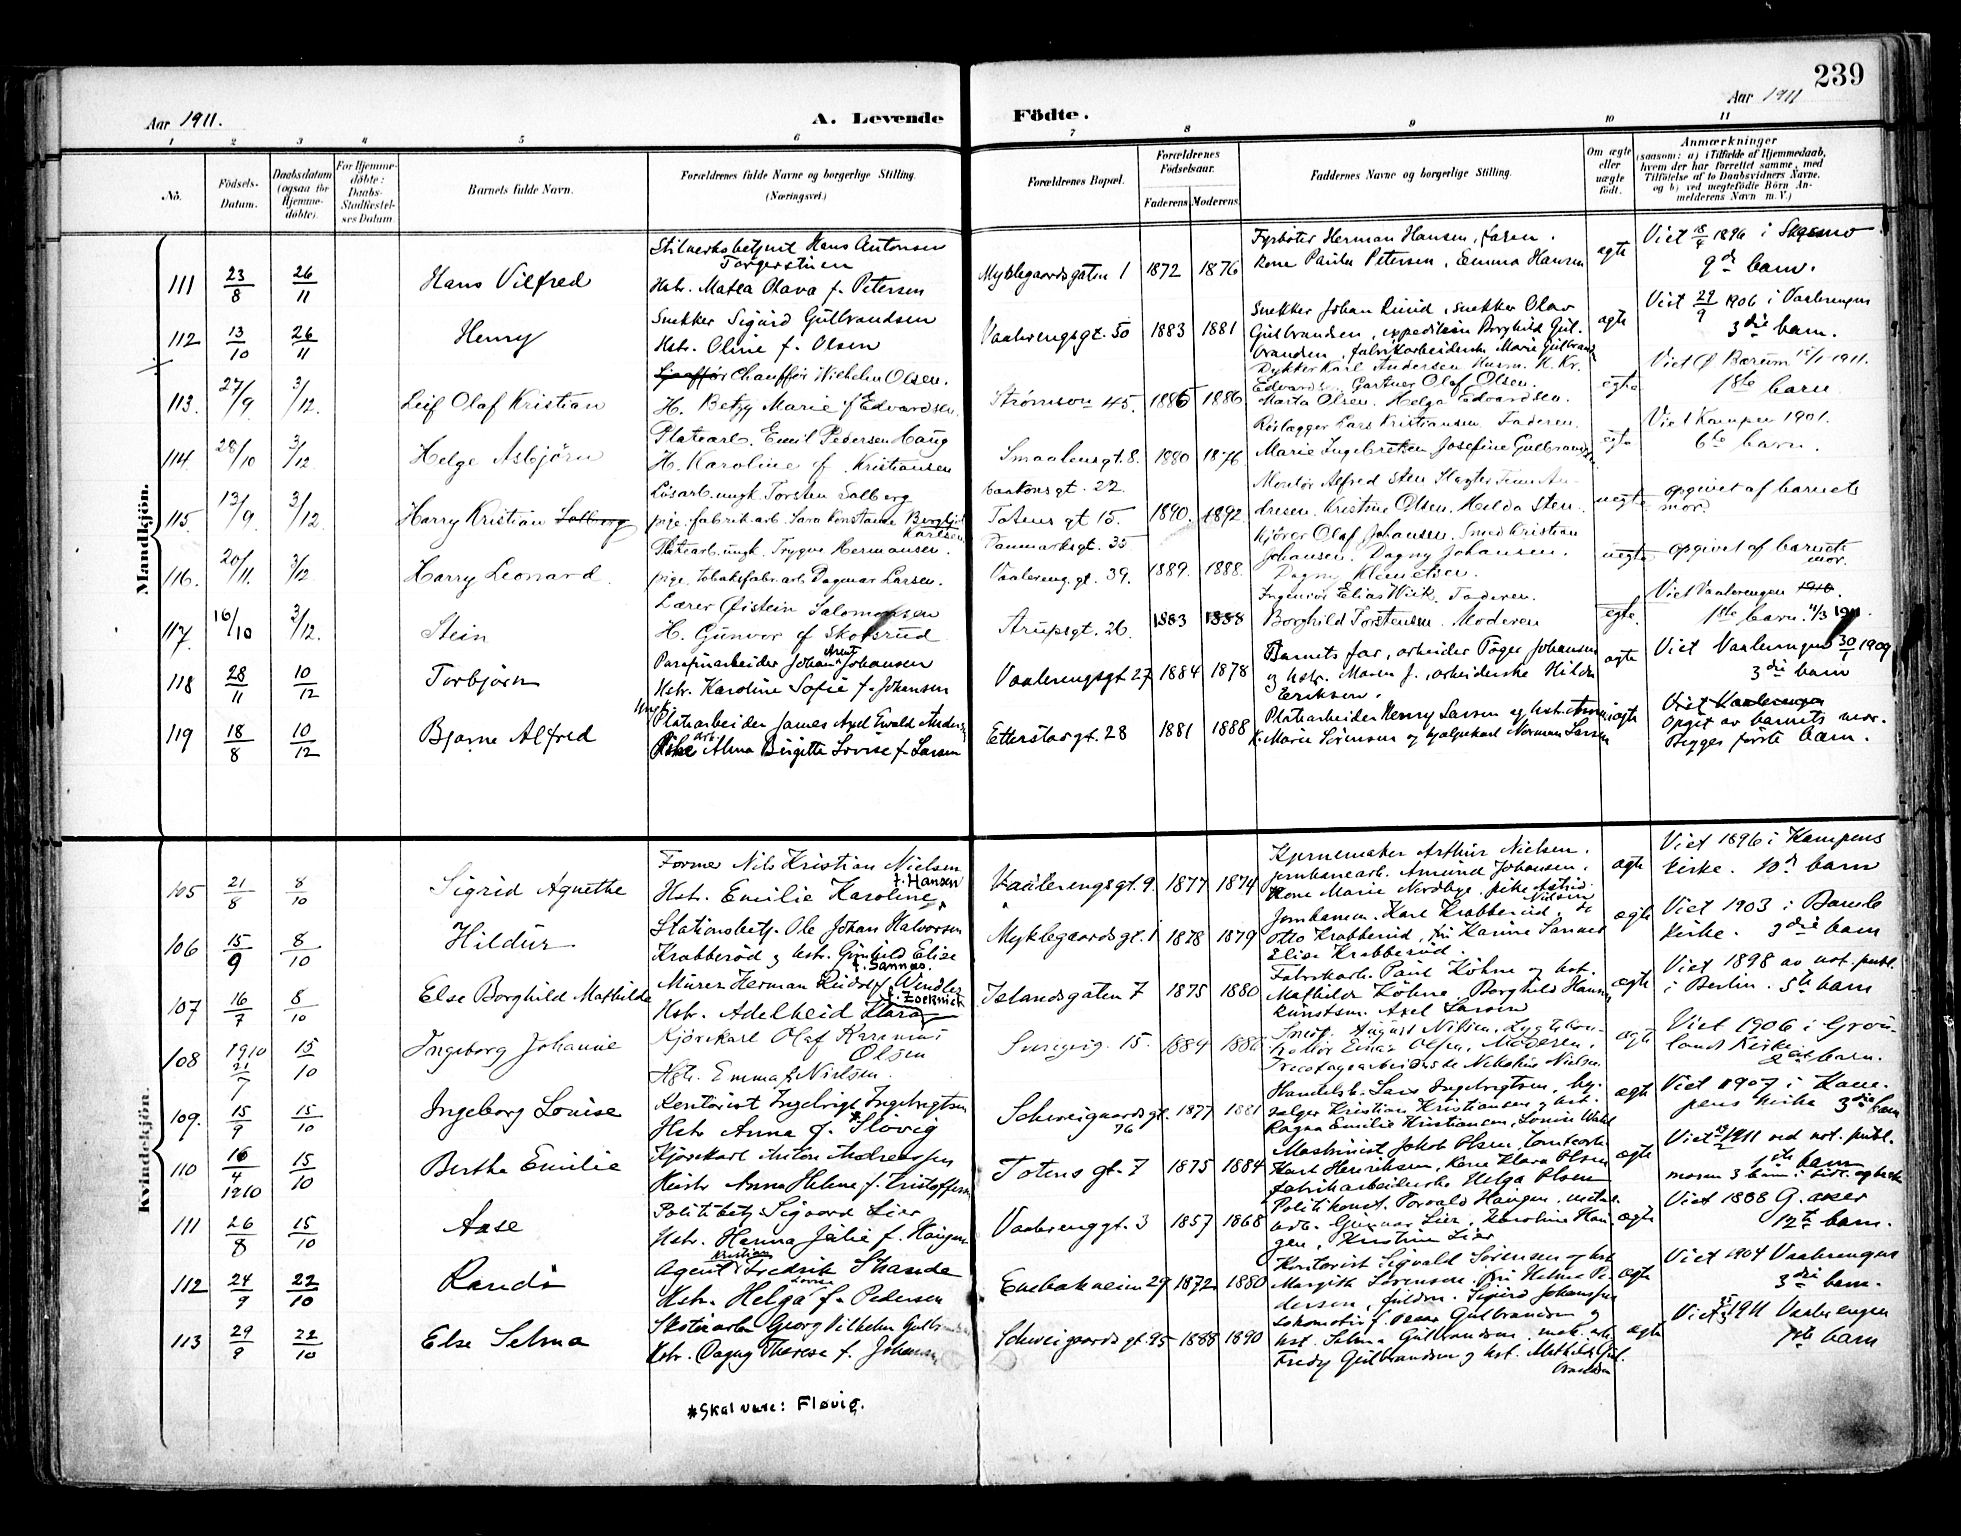 239
Aar 1911.
A. Levende
Födte.
Aar 1911
1 2 3 4 5 6 7 8 9 10 11
No.
Födsels-Datum.
Daabsdatum (ogsaa for Hjemme-döbte).
For Hjemme-döbte: Daabs-Stadfæstel-ses Datum.
Barnets fulde Navn.
Forældrenes fulde Navne og borgerlige Stilling. (Næringsvei.)
Forældrenes Bopæl.
Forældrenes Födselsaar.
Faderens. Moderens.
Faddernes Navne og borgerlige Stilling.
Om ægte eller uægte födt.
Anmærkninger (saasom: a) i Tilfælde af Hjemmedaab, hvem der har forrettet samme, med Tilföielse af to Daabsvidners Navne. og b) ved uegtefödte Börn An-melderens Navn m. V.)
Mandkjön.
111 23/8 26/11 Hans Vilfred
Hans Antonsen
Torgerstuen
Hstr. Matea Olava f. Petersen
Myklegaardsgaten 1 1872 1876
Fyrbøter Herman Hansen, faren.
Kone Paula Petersen, Emma Hansen
ægte
Viet 18/9 1896 i
9de barn.
112 13/10 26/11 Henry
Snekker Sigurd Gulbrandsen
Hstr. Oline f. Olsen
Vaalerengsgt. 50 1883 1881
Snekker Johan Lund, snekker Olav
Gulbrandsen, expeditrice Borghild Gul-
brandsen, fabrikarbeiderske Marie Gulbrandsen
ægte
Viet 29/9 1906 i Vaalerengen
3die barn.
113. 27/9 3/12. Leif Olaf Kristian
Chauffør Wilhelm Olsen.
H. Betzy Marie f Edvardsen.
Strømsvn 45. 1885 1886
Karl Andersen
Gartner Olaf Olsen.
Marta Olsen. Helga Edvardsen.
egte
Viet Bærum 1911.
1ste barn
114. 28/10 3/12 Helge Asbjörn
Platearb. Emil Pedersen Haug
H. Karoline f Kristiansen
Smaalensgt. 8. 1880 1876
Rörlægger Lars Kristiansen Faderen.
Marie Ingebretsen Josefine Gulbrandsen
egte
Viet Kampen 1901.
6te barn.
115. 13/9. 3/12. Harry Kristian Solberg
ungk. Torsten Solberg
pige. fabrik.arb. Sara Konstanse Borghild Karlsen
gt. 22
Totens gt 15. 1890. 1892
Montör Alfred Sten
Kristine Olsen. Helda Sten.
uegte
opgivet af barnets mor
116. 20/11. 3/12 Harry Leonard.
Platearb. ungk. Trygve Hermansen.
pige. Tobaksfabr.arb. Dagmar Larsen.
Danmarksgt. 35
Vaalereng.gt. 39. 1889. 1888.
Kjörer Olaf Johansen. Smed Kristian
Johansen. Dagny Johansen.
Dagny Klemetsen.
uegte
opgivet af barnets mor.
117. 16/10 3/12. Stein
Lærer Øistein Salomonsen
H. Gunvor f Skotsrud
Arupsgt. 26. 1883 1888
Ingeniör Elias Wiik. Faderen.
Borghild Torstensen. Moderen
egte.
Viet Vaalerengen 1910.
1ste barn. 11/3 1911.
118 28/11 10/12 Torbjørn
Parafinarbeider Johan Arnt Johansen
Hstr. Karoline Sofie f. Johansen
Vaalerengsgt 27 1884 1878
Barnets far, arbeider Tøger Johansen
og hstr. Maren J., arbeiderske Hilda
Eriksen.
ægte
Viet Vaalerengen 30/1 1909
3die barn
119 18/8 10/12 Bjarne Alfred
Ungk. Platearbeider James Axel Ewald Andersen
Pike arb. Alma Birgitte Lovise f. Larsen
Etterstadgt. 28 1881 1888
Platearbeider Henry Larsen og hst. Anna
Marie Sørensen og hjælpekarl Norman Larsen
uægte
Viet Vaalerengen
Opgit av barnets mor.
Begges første barn.
Kvindekjön.
105 21/8 8/10 Sigrid Agnethe
Former Nils Kristian Nielsen
Hstr. Emilie Karoline f. Hansen
Vaalerengsgt. 9. 1877 1874
Kjernemaker Arthur Nielsen,
jernbanearb. Amund Johansen,
Kone Marie Nordbye, pike Astrid Nielsen
ægte
Viet 1896 i Kampens
kirke. 10de barn
106 15/9 8/10 Hildur
Stationsbetj. Ole Johan Halvorsen
Krabberød og hstr. Gunhild Elise
f. Sannes.
Myklegaardsgt. 1 1878 1879
Jernbanem. Karl Krabberød,
Otto Krabberød, fru Karine Sannes
Elise Krabberød.
ægte
Viet 1903 i Bamle
kirke. 3die barn
107 16/7 8/10 Else Borghild Mathilde
Murer Herman Rudolf Windler
Hstr. Adelheid Klara
Islandsgaten 7 1875 1880
Fabrikarb. Paul Köhne og hst.
Mathilde Köhne, Borghild Hansen
kunstsm. Axel Larsen
ægte
Viet 1898 av not. publ.
i Berlin. 5te barn
108 1910 21/7 15/10 Ingeborg Johanne
Kjørekarl Olaf
Olsen
Hstr. Emma f. Nielsen.
15. 1884 1886
August Nilsen,
Moderen,
Nielsen
ægte
Viet 1906 i Grøn-
lands Kirke
2det barn.
109. 15/9 15/10 Ingeborg Louise
Kontorist Ingebrigt Ingebrigtsen
Hstr Anna f. *Sløvig
Schweigaardsgt. 76 1877 1881
Handelsb. Lars Ingebrigtsen,
sælger Kristian Kristiansen og hst.
Ragna Emilie Kristiansen, Louise
ægte
Viet 1907 i Kam-
pens kirke 3die barn
110 16/4 1910 15/10 Berthe Emilie
Kjørekarl Anton Andreassen
Hustr Anna Helene f. Kristoffersen
Totens gt. 7 1875 1884
Maskinist Jakob Olsen
Karl Henriksen, Kone Klara Olsen
fabrikarbeiderske Helga Olsen
ægte
Viet 1911 ved not. publ.
1ste barn
111 26/8 15/10 Aase
Politibetj. Sigvard Lier
Hstr. Hanna Julie f. Haugen
Vaalerenggt. 3 1857 1868
Politikonst. Torvald Haugen,
Gunnar Lier, Karoline Hau-
gen, Kristine Lier
ægte
Viet 1888 G. aker
12te barn.
112 24/9 22/10 Randi
Agent Kristian Fredrik Strande
Hstr. Helga Lovise f. Pedersen
Enebakveien 29 1872 1880
Kontorist Sigvald Sørensen og hst
Margith Sørensen, fru Helma Pe-
dersen, Sigurd Johansen
ægte
Viet 1904 Vaalerengen
3die barn.
113 29/9 22/10 Else Selma
Georg Vilhelm
Hstr. Dagny Therese f. Johansen
Schweigaardsgt. 95 1888 1890
Gulbrandsen og
hst. Selma Gulbrandsen,
Fredy Gulbrandsen og hst. Mathilde Gul-
brandsen
ægte
Viet 1911 Vaalerengen
1ste barn
*Skal være: Fløvig.